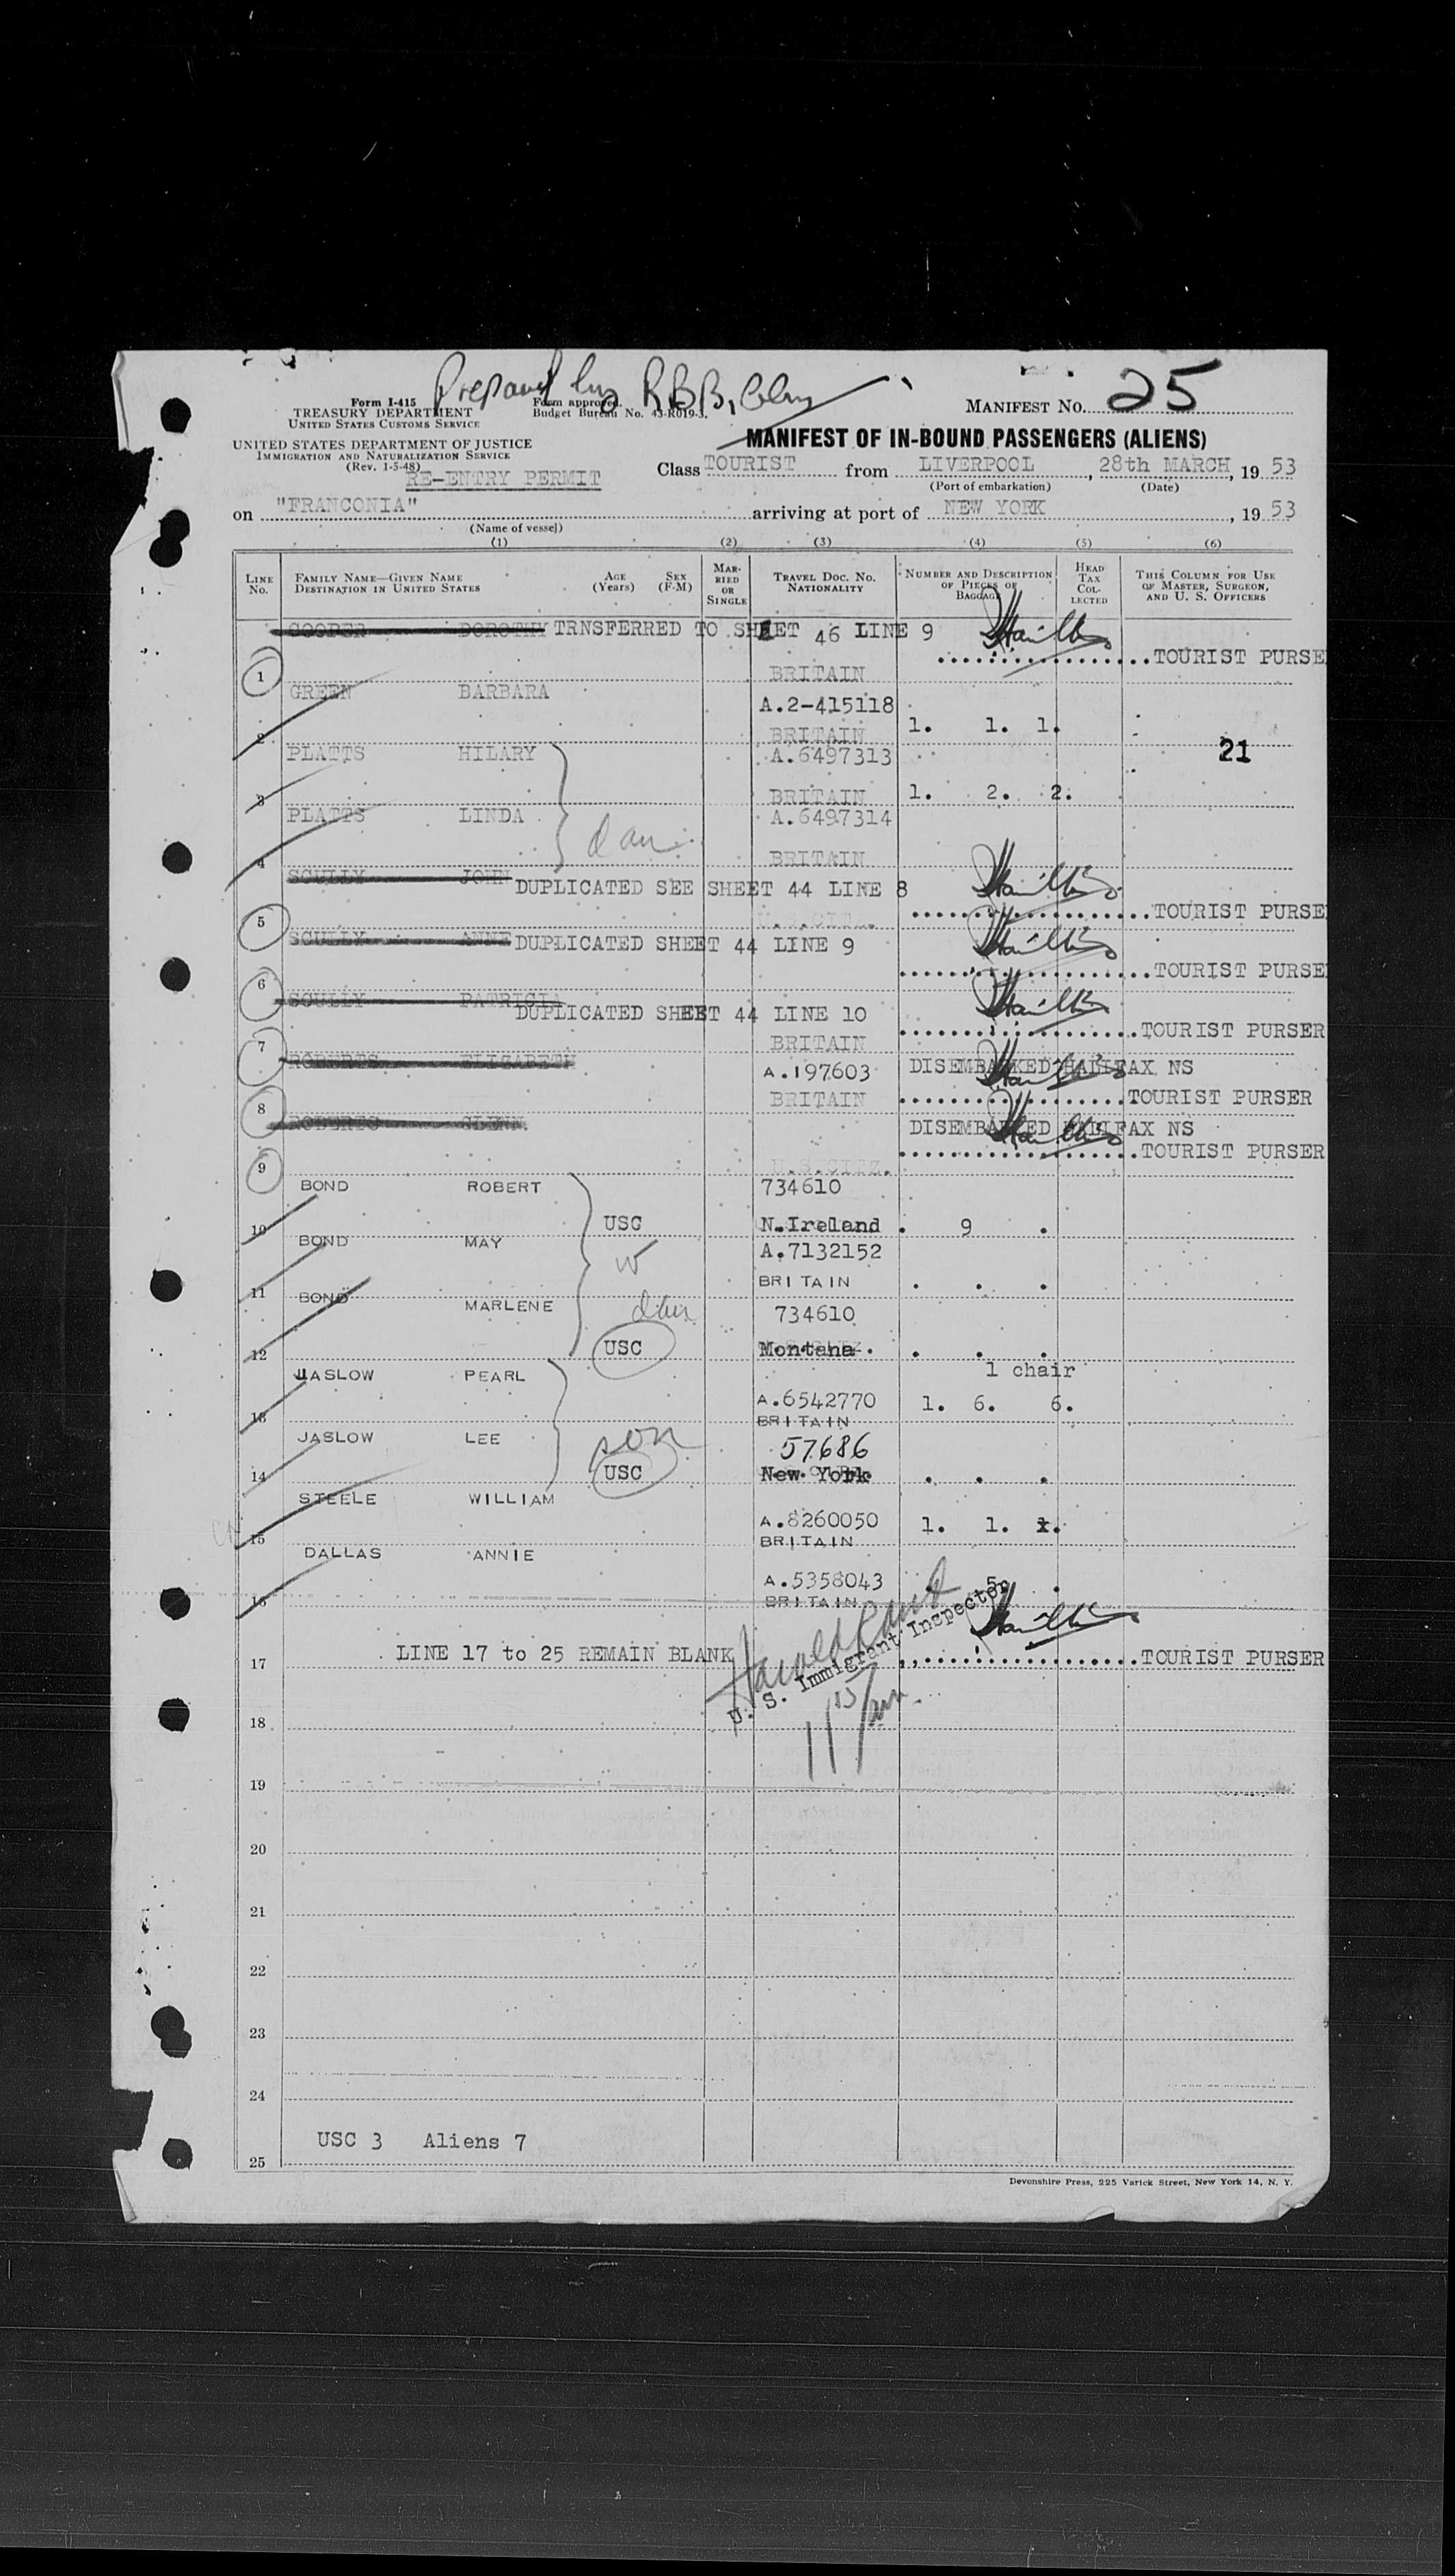 Prepared by R B B
Form I-415
TREASURY DEPARTMENT
UNITED STATES CUSTOMS SERVICE
Form approved.
Budget Bureau No. 43-R019-3.
MANIFEST NO. 25
UNITED STATES DEPARTMENT OF JUSTICE
IMMIGRATION AND NATURALIZATION SERVICE
(Rev. 1-5-48)
MANIFEST OF IN-BOUND PASSENGERS (ALIENS)
RE-ENTRY PERMIT
Class TOURIST from LIVERPOOL, 28th MARCH, 19 53
(Port of embarkation) (Date)
on "FRANCONIA" arriving at port of NEW YORK, 19 53
(Name of vessel)
(1) (2) (3) (4) (5) (6)
LINE NO. FAMILY NAME—GIVEN NAME DESTINATION IN UNITED STATES AGE (Years) SEX (F-M) MARRIED OR SINGLE TRAVEL DOC. NO. NATIONALITY NUMBER AND DESCRIPTION OF PIECES OF BAGGAGE HEAD TAX COLLECTED THIS COLUMN FOR USE OF MASTER, SURGEON, AND U. S. OFFICERS
COOPER DOROTHY TRNSFERRED TO SHEET 46 LINE 9
TOURIST PURSE
1 BRITAIN
GREEN BARBARA A.2-415118
2 BRITAIN 1. 1. 1.
PLATTS HILARY A.6497313 21
3 BRITAIN 1. 2. 2.
PLATTS LINDA A.6497314
dau
4 BRITAIN
SCULLY JOHN DUPLICATED SEE SHEET 44 LINE 8
TOURIST PURSE
5 U.S.CITZ.
SCULLY ANNE DUPLICATED SHEET 44 LINE 9
TOURIST PURSE
6
SCULLY PATRICIA DUPLICATED SHEET 44 LINE 10
TOURIST PURSER
7 BRITAIN
ROBERTS ELIZABETH A.197603 DISEMBARKED HALIFAX NS
TOURIST PURSER
8 BRITAIN
ROBERTS GLENN DISEMBARKED HALIFAX NS
TOURIST PURSER
9 U.S.CITZ.
BOND ROBERT 734610
10 USC N.Ireland 9
BOND MAY A.7132152
W
11 BRITAIN
BOND MARLENE 734610
dau
12 USC Montana
1 chair
JASLOW PEARL A.6542770 1. 6. 6.
13 BRITAIN
JASLOW LEE 57686
son
14 USC New York
STEELE WILLIAM A.8260050 1. 1. 1.
15 BRITAIN
DALLAS ANNIE A.5358043 5
16 BRITAIN
U. S. Immigrant Inspector
LINE 17 to 25 REMAIN BLANK
17 TOURIST PURSER
18
19
20
21
22
23
24
USC 3 Aliens 7
25
Devonshire Press, 225 Varick Street, New York 14, N. Y.